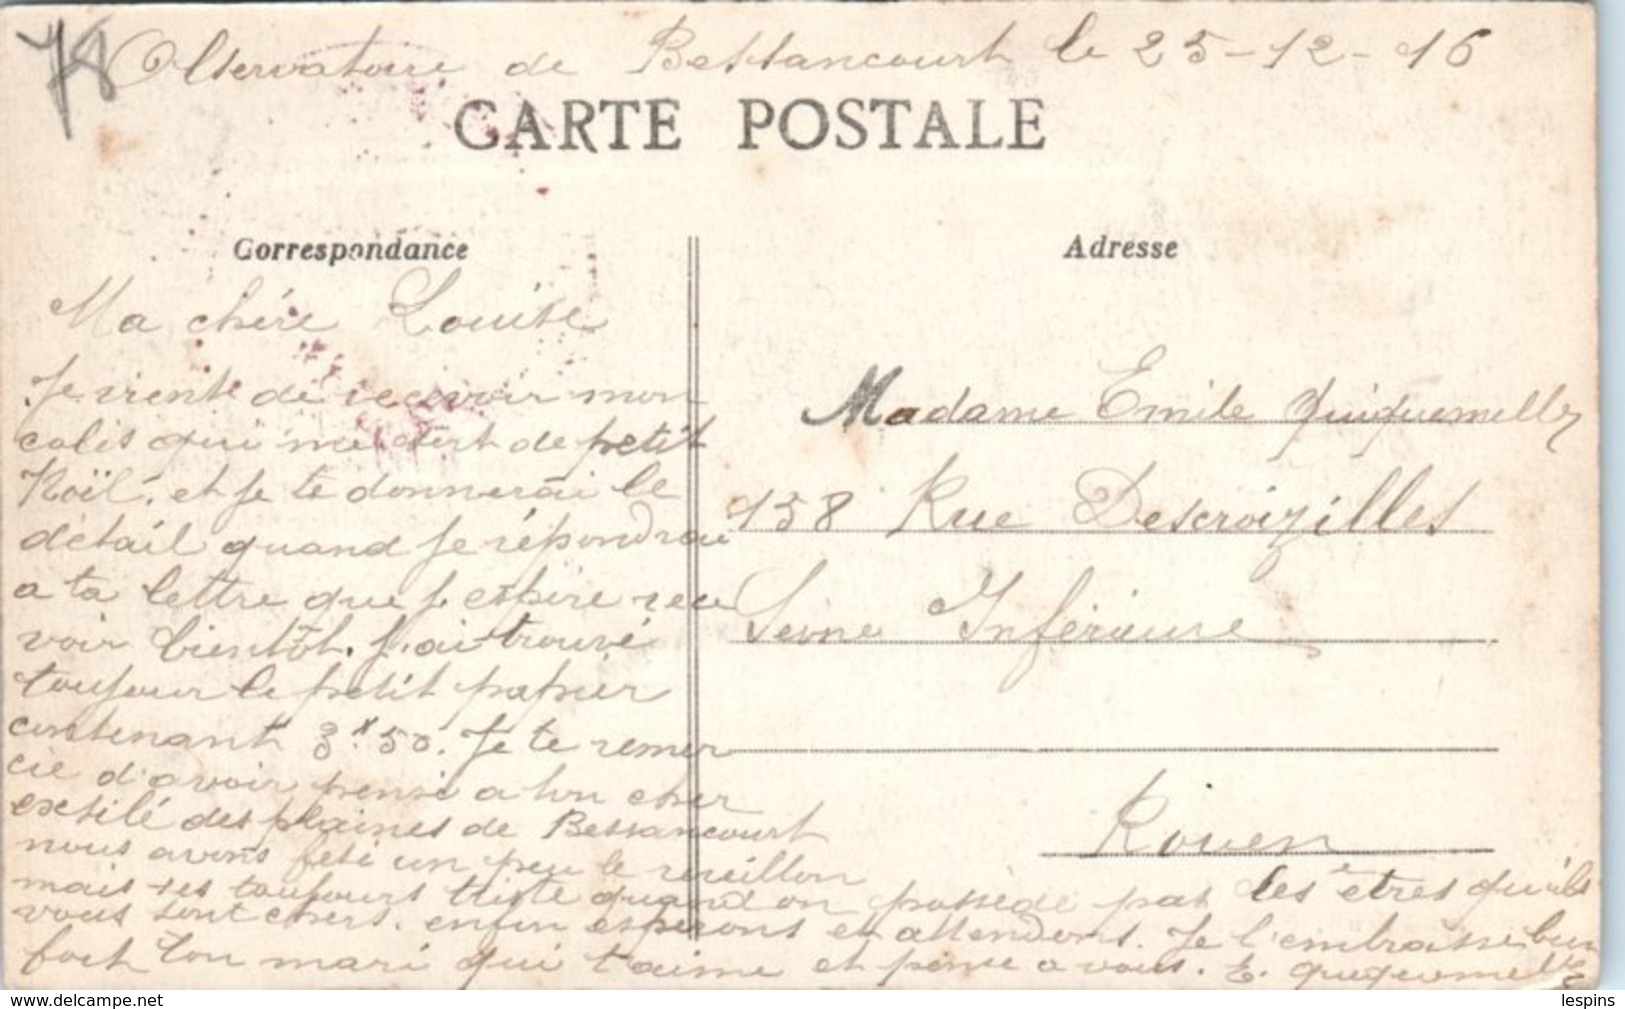 78 Observatoire de Bessancourt le 25-12-16
CARTE POSTALE
Correspondance
Adresse
Ma chére Louise
Je vient de recevoir mon
colis qui me sert de petit
Noël, et je te donnerai le
détail quand je répondrai
a ta lettre que j. espère rece
voir bientôt. j.ai trouvé
toujour le petit papier
contenant 3.50. Je te remer
cie d'avoir pensé a ton cher
exilé des plaines de Bessancourt
nous avons feté un peu le reveillon
mais s'es toujours triste quand on possède pas les êtres qu'ils
vous sont chers. enfin esperons et attendons. Je t'embrasse bien
fort ton mari qui t'aime et pense a vous. E. Quiquemelle
Madame Emile Quiquemelle
158 Rue Descroizilles
Seine Inférieure
Rouen
https://www.delcampe.net
lespins